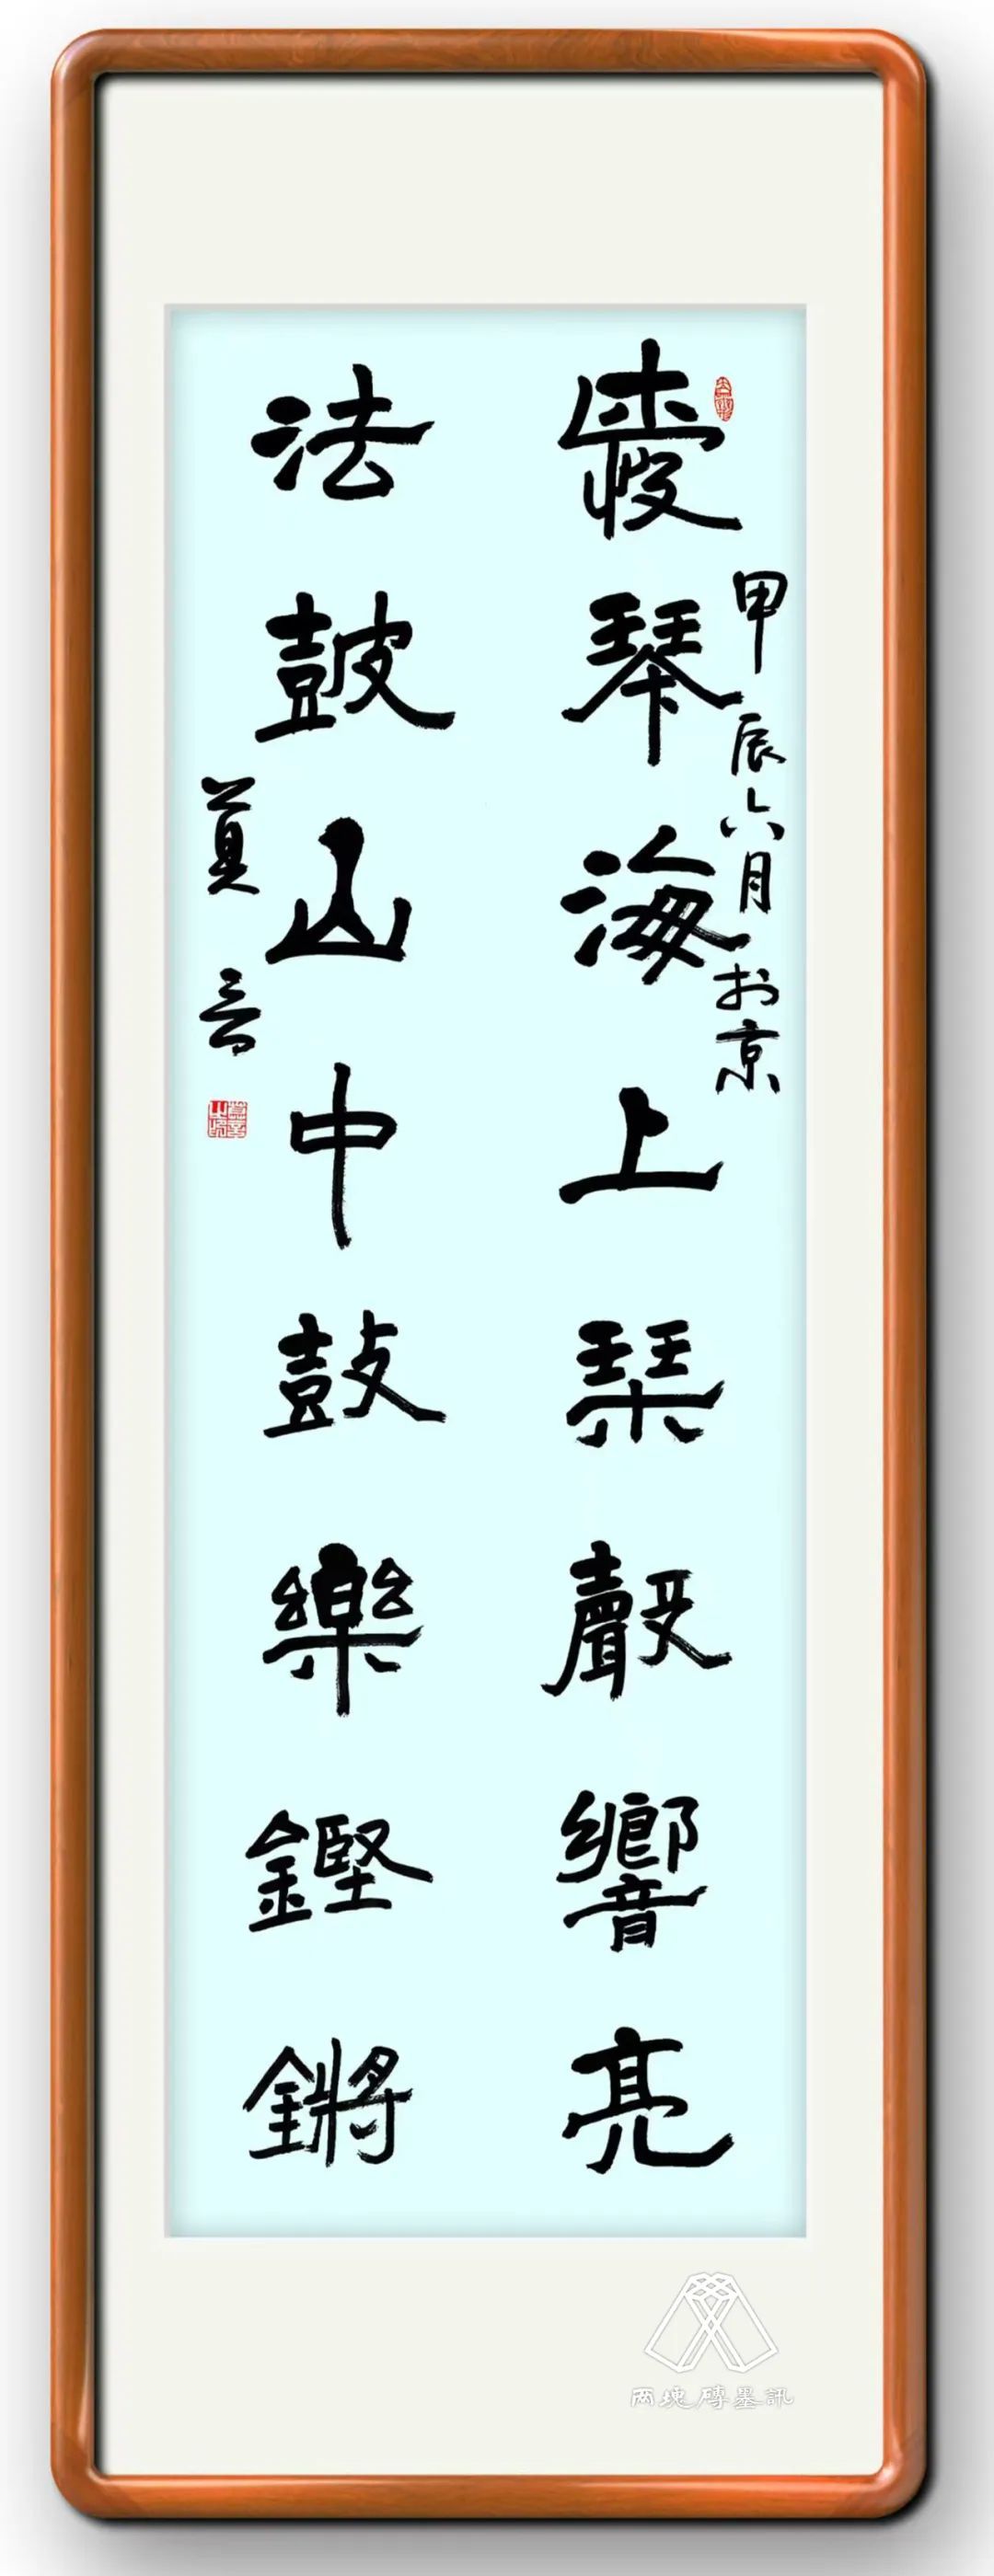 甲辰六月於京
愛琴海上琴聲響亮
法鼓山中鼓樂鏗鏘
莫言
兩塊磚墨訊